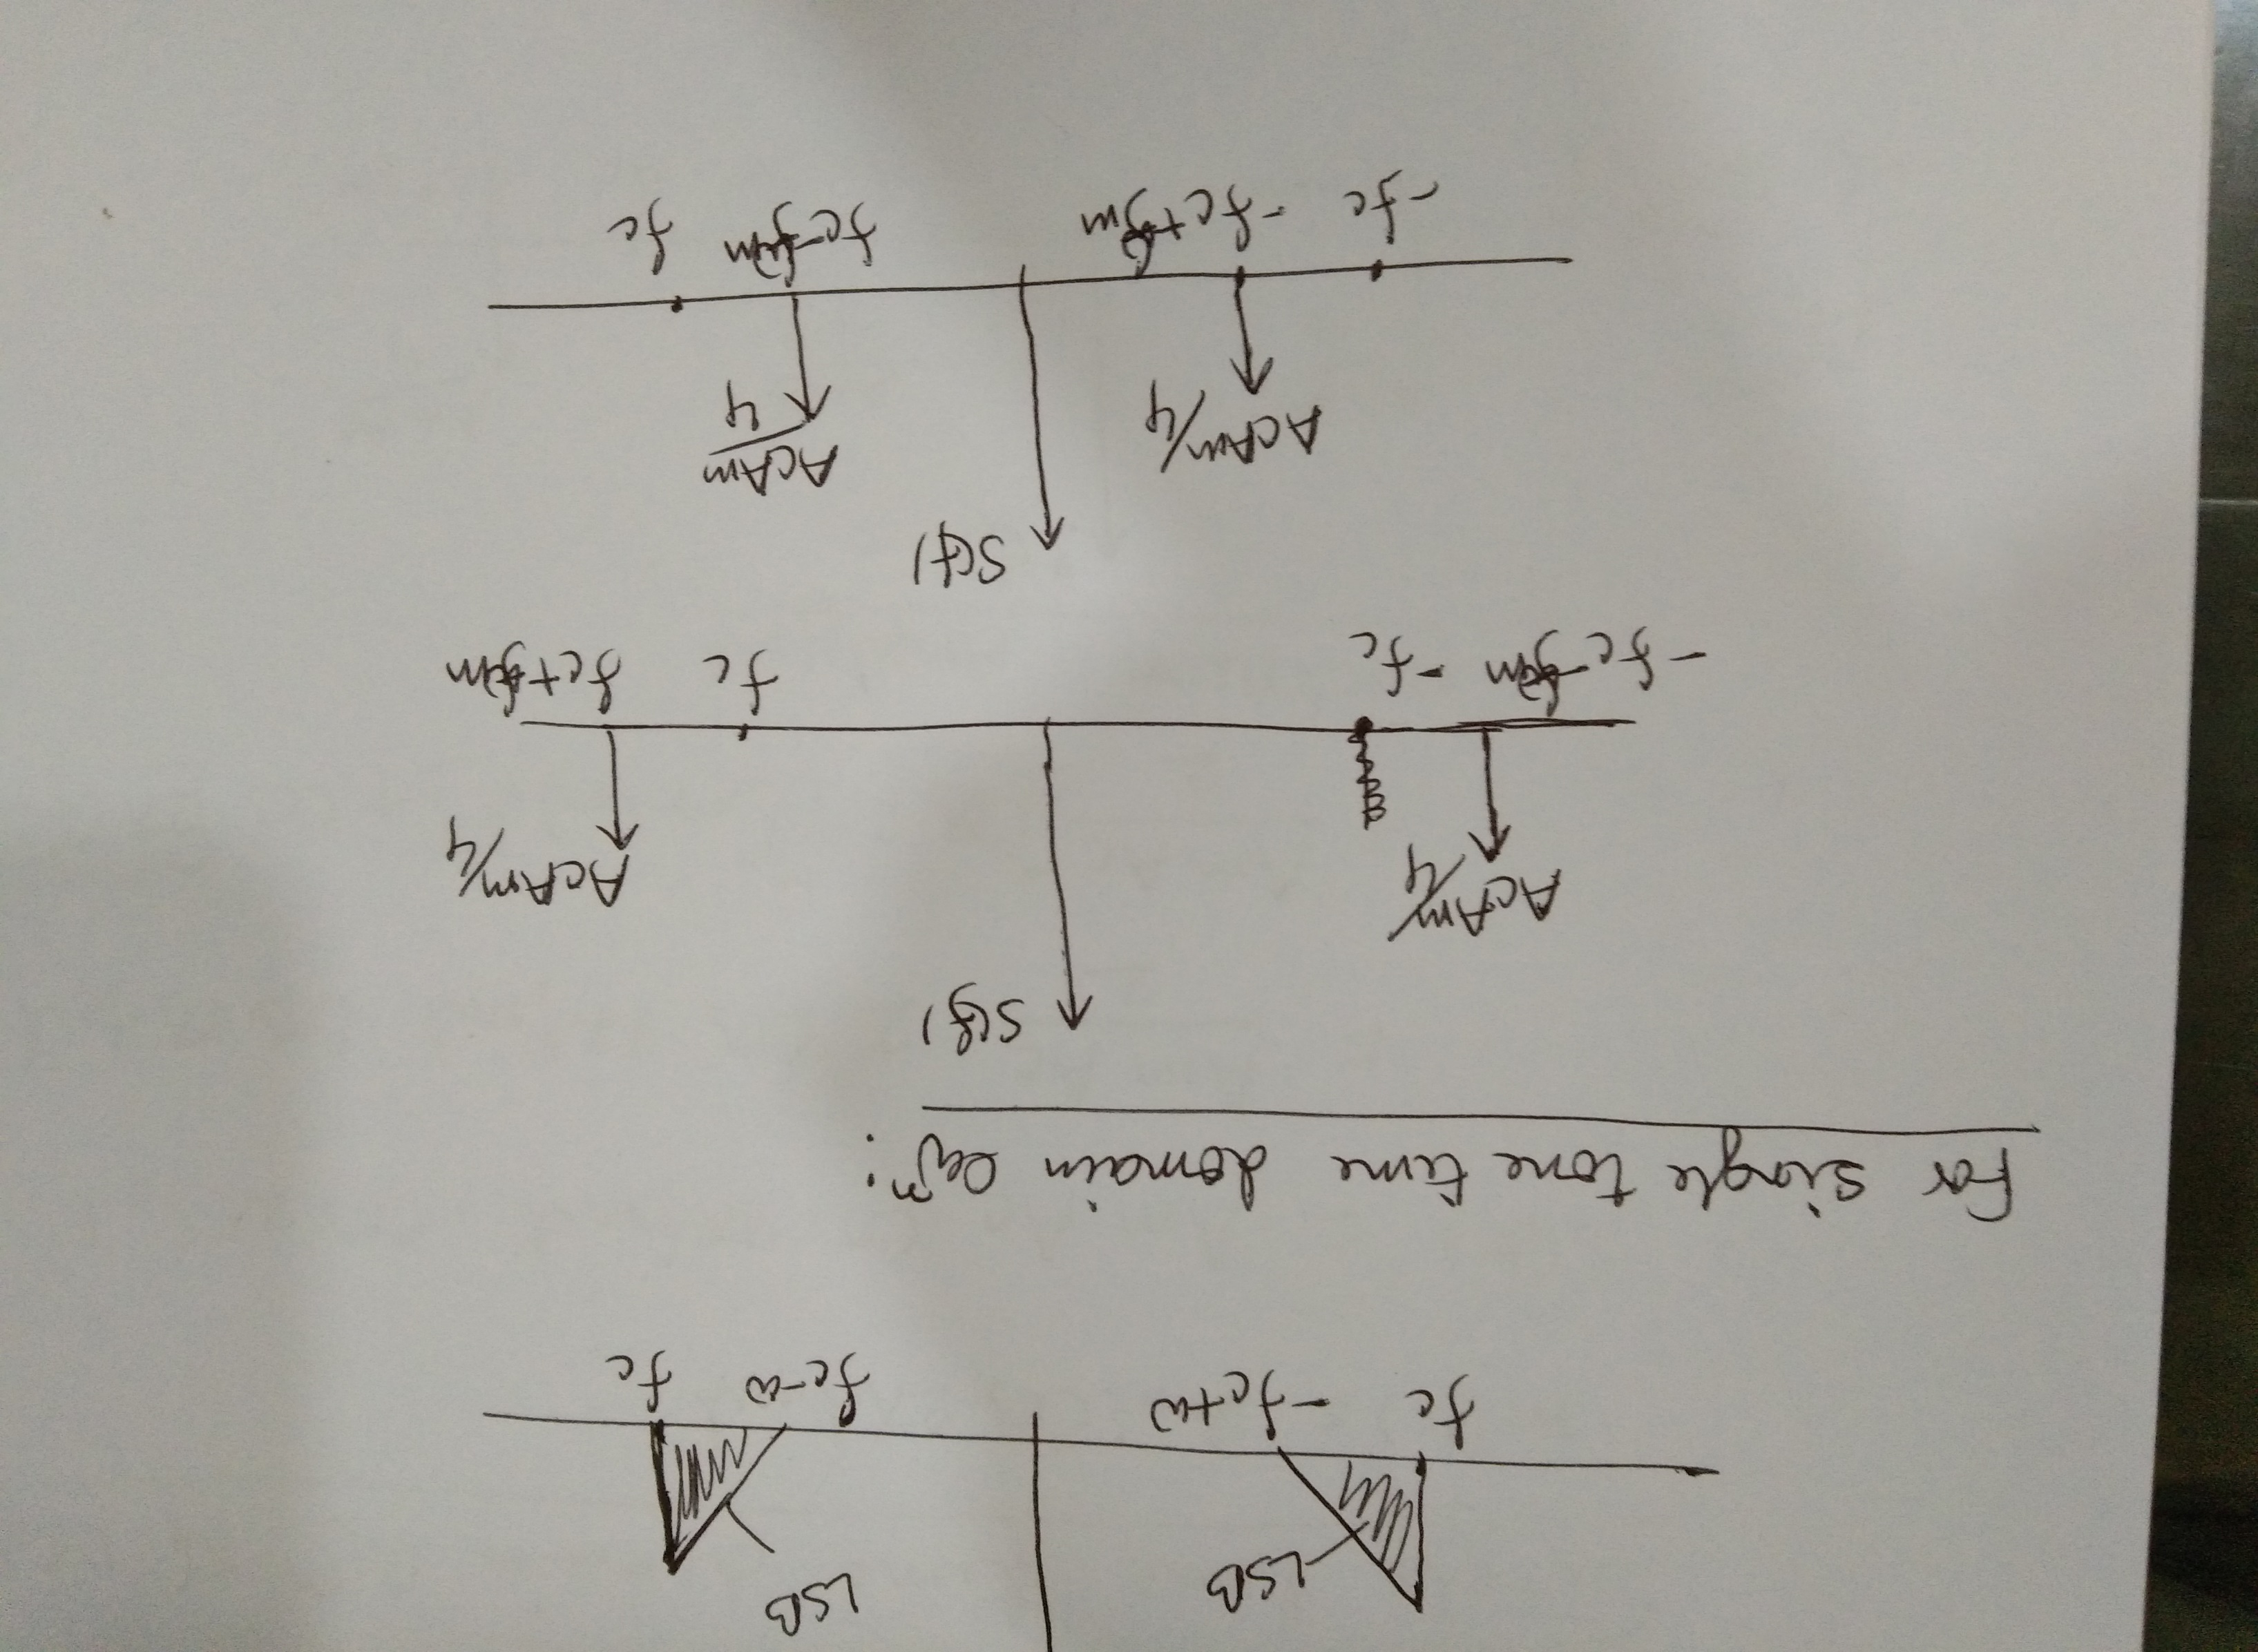 LSB LSB
fc -fc+w fc-w fc
For single tone time domain eqⁿ:
S(f)
AcAm/4 AcAm/4
-fc-fm -fc fc fc+fm
S(f)
AcAm/4 AcAm
4
-fc -fc+fm fc-fm fc